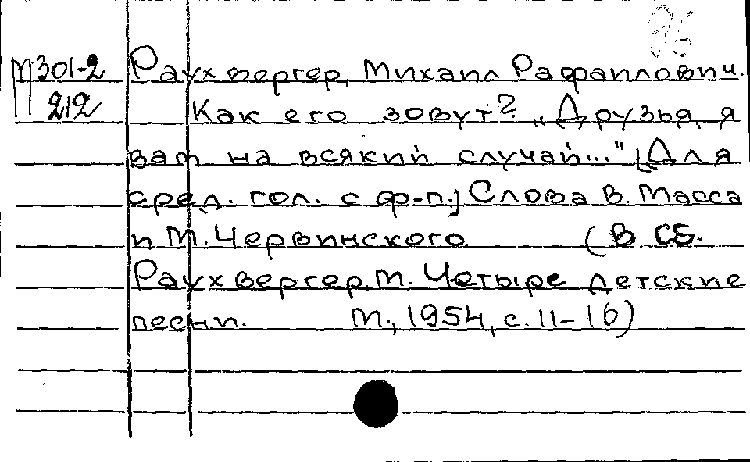 М301-2 Раухвергер, Михаил Рафаилович.
212 Как его зовут? „Друзья, я
вам на всякий случай..." [Для
сред. гол. с ф-п.] Слова В. Масса
и М. Червинского (В сб.
Раухвергер, М. Четыре детские
песни. М., 1954, с. 11-16)